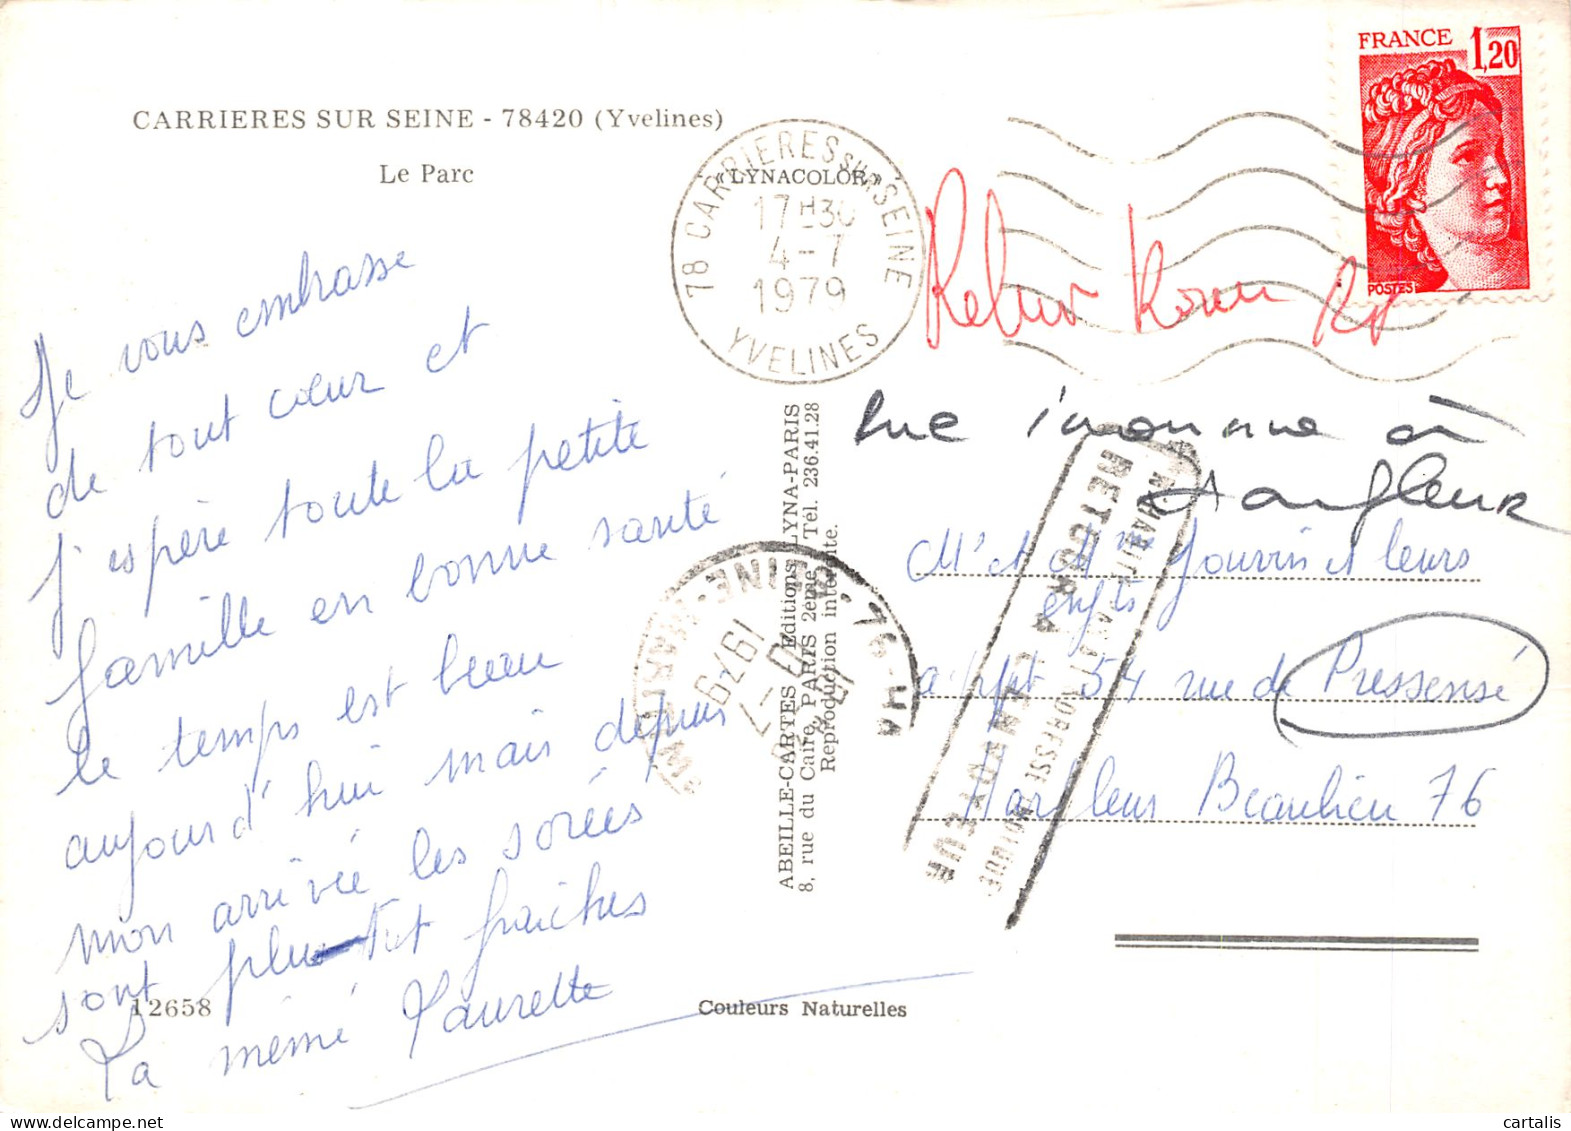 CARRIERES SUR SEINE - 78420 (Yvelines)
Le Parc
FRANCE 1,20
POSTES
78 CARRIERES SUR SEINE
«LYNACOLOR»
17H30
4-7
1979
YVELINES
Je vous embrasse
de tout cœur et
j'espère toute la petite
famille en bonne santé
le temps est beau
aujourd'hui mais depuis
mon arrivée les sorées
sont plutôt fraîches
La mémé Laurette
12658
Couleurs Naturelles
ABEILLE-CARTES Editions LYNA-PARIS
8, rue du Caire, PARIS 2ème Tél. 236.41.28
Reproduction interdite.
Retour
Rue inconnue à
Harfleur
Mr et Mme Jouvin et leurs
enfts
appt 54 rue de Pressensé
Harfleur Beaulieu 76
RETOUR A L'ENVOYEUR
N'HABITE PAS A L'ADRESSE INDIQUEE
76 HARFLEUR
1979
SEINE-MARITIME